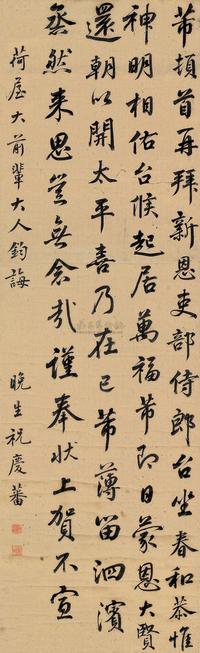 芾頓首再拜新恩吏部侍郎台坐春和恭惟
神明相佑台候起居萬福芾即日蒙恩大賢
還朝以開太平喜乃在己芾薄留泗濱
烝然来思豈無念哉謹奉狀上賀不宣
荷屋大前輩大人鈞誨
晚生祝慶蕃